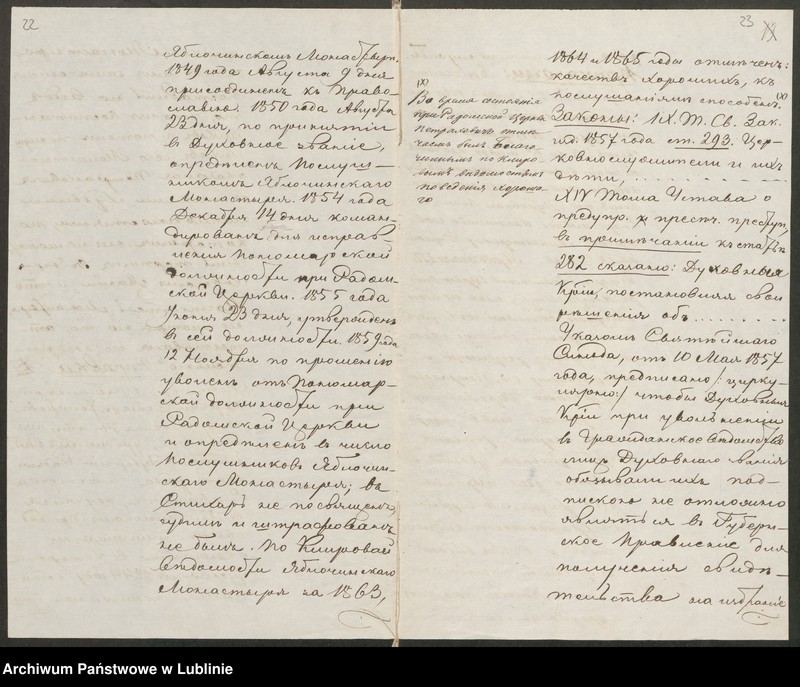 22
Яблочинскомъ Монастырѣ.
1849 года Августа 9 дня
присоединенъ къ Право-
славію. 1850 года Августа
23 дня, по принятіи
въ Духовное званіе,
опредѣленъ Послуш-
никомъ Яблочинскаго
Монастыря. 1854 года
Декабря 14 дня коман-
дированъ для исправ-
ленія Пономарской
должности при Радом-
ской Церкви. 1855 года
Іюня 23 дня, утвержденъ
въ сей должности. 1859 года
12 Ноября по прошенію
уволенъ отъ Пономар-
ской должности при
Радомской Церкви
и опредѣленъ въ число
Послушниковъ Яблочин-
скаго Монастыря; въ
Стихарь не посвященъ,
судимъ и штрафованъ
не былъ. По Клировой
Вѣдомости Яблочинскаго
Монастыря за 1863,
23
(X)
Во время состоянія
при Радомской Церкви
Петраковъ отмѣ-
ченъ былъ Благо-
чиннымъ по клиро-
вымъ вѣдомостямъ
поведенія хороша-
го
1864 и 1865 годы отмѣченъ:
качествъ хорошихъ, къ
послушаніямъ способенъ. (X)
Законы: IX. Т. Св. Зак.
изд. 1857 года ст. 293. Цер-
ковнослужители и ихъ
дѣти, . . . . . . . . . .
XIV Тома Устава о
предупр. и пресѣч. преступ.,
въ примѣчаніи къ статьѣ
282 сказано: Духовныя
Кріи, постановляя свои
рѣшенія объ . . . . . . . . .
Указомъ Святѣйшаго
Синода, отъ 10 Мая 1857
года, предписано /: цирку-
лярно :/ чтобы Духовныя
Кріи при увольненіи
въ Гражданское вѣдомство
лицъ Духовнаго званія
обязывали ихъ под-
пискою не отложно
являться въ Губерн-
ское Правленіе для
полученія свидѣ-
тельства на избраніе
Archiwum Państwowe w Lublinie